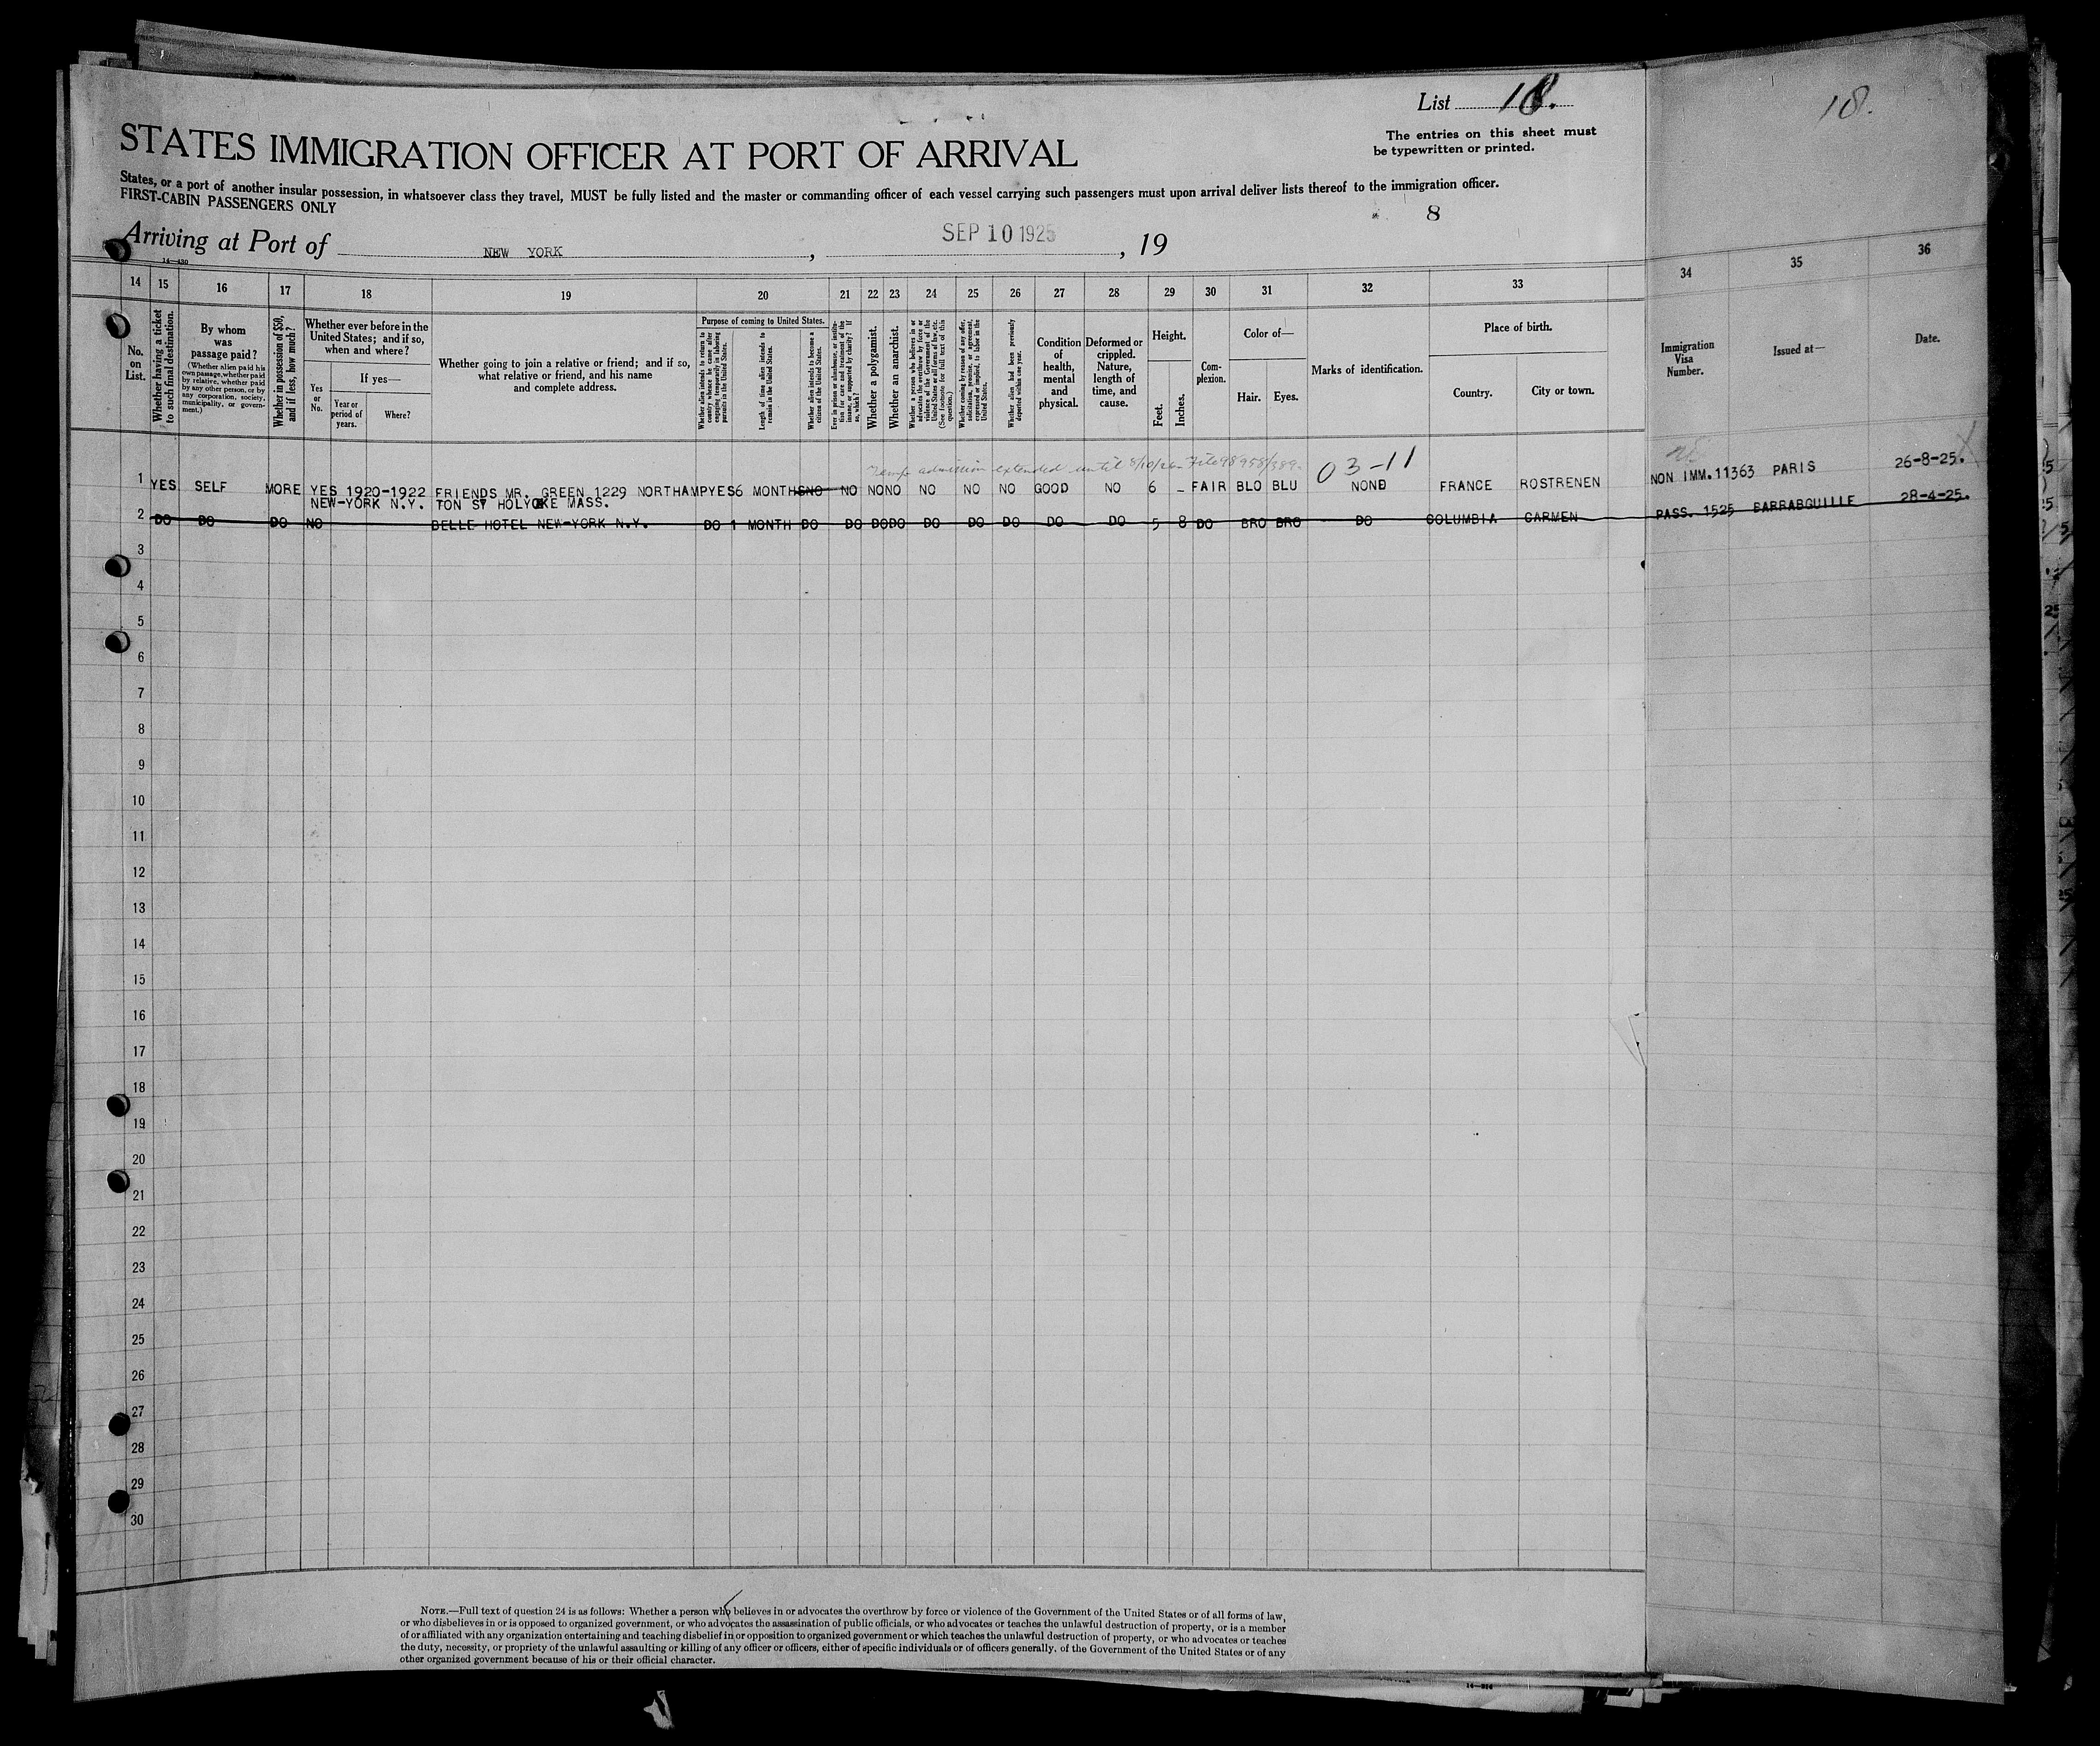 List 18.
18.
The entries on this sheet must
be typewritten or printed.
STATES IMMIGRATION OFFICER AT PORT OF ARRIVAL
States, or a port of another insular possession, in whatsoever class they travel, MUST be fully listed and the master or commanding officer of each vessel carrying such passengers must upon arrival deliver lists thereof to the immigration officer.
FIRST-CABIN PASSENGERS ONLY
8
Arriving at Port of NEW YORK, SEP 10 1925, 19
14—430
14 15 16 17 18 19 20 21 22 23 24 25 26 27 28 29 30 31 32 33 34 35 36
No. on List.
Whether having a ticket to such final destination.
By whom was passage paid?
(Whether alien paid his own passage, whether paid by relative, whether paid by any other person, or by any corporation, society, municipality, or government.)
Whether in possession of $50, and if less, how much?
Whether ever before in the United States; and if so, when and where?
Yes or No.
If yes—
Year or period of years.
Where?
Whether going to join a relative or friend; and if so, what relative or friend, and his name and complete address.
Purpose of coming to United States.
Whether alien intends to return to country whence he came after engaging temporarily in laboring pursuits in the United States.
Length of time alien intends to remain in the United States.
Whether alien intends to become a citizen of the United States.
Ever in prison or almshouse, or institution for care and treatment of the insane, or supported by charity? If so, which?
Whether a polygamist.
Whether an anarchist.
Whether a person who believes in or advocates the overthrow by force or violence of the Government of the United States or all forms of law, etc. (See footnote for full text of this question.)
Whether coming by reason of any offer, solicitation, promise, or agreement, expressed or implied, to labor in the United States.
Whether alien had been previously deported within one year.
Condition of health, mental and physical.
Deformed or crippled. Nature, length of time, and cause.
Height.
Feet.
Inches.
Complexion.
Color of—
Hair. Eyes.
Marks of identification.
Place of birth.
Country. City or town.
Immigration Visa Number.
Issued at—
Date.
Temp admission extended until 8/10/26 File 98958/389
03-11
1 YES SELF MORE YES 1920-1922 FRIENDS MR. GREEN 1229 NORTHAMP YES 6 MONTHS NO NO NO NO NO NO NO GOOD NO 6 – FAIR BLO BLU NOND FRANCE ROSTRENEN NON IMM.11363 PARIS 26-8-25.
NEW-YORK N.Y. TON ST HOLYOKE MASS.
2 DO DO DO NO BELLE HOTEL NEW-YORK N.Y. DO 1 MONTH DO DO DO DO DO DO DO DO DO 5 8 DO BRO BRO DO COLUMBIA CARMEN PASS. 1525 BARRABQUILLE 28-4-25.
3
4
5
6
7
8
9
10
11
12
13
14
15
16
17
18
19
20
21
22
23
24
25
26
27
28
29
30
NOTE.—Full text of question 24 is as follows: Whether a person who believes in or advocates the overthrow by force or violence of the Government of the United States or of all forms of law,
or who disbelieves in or is opposed to organized government, or who advocates the assassination of public officials, or who advocates or teaches the unlawful destruction of property, or is a member
of or affiliated with any organization entertaining and teaching disbelief in or opposition to organized government or which teaches the unlawful destruction of property, or who advocates or teaches
the duty, necessity, or propriety of the unlawful assaulting or killing of any officer or officers, either of specific individuals or of officers generally, of the Government of the United States or of any
other organized government because of his or their official character.